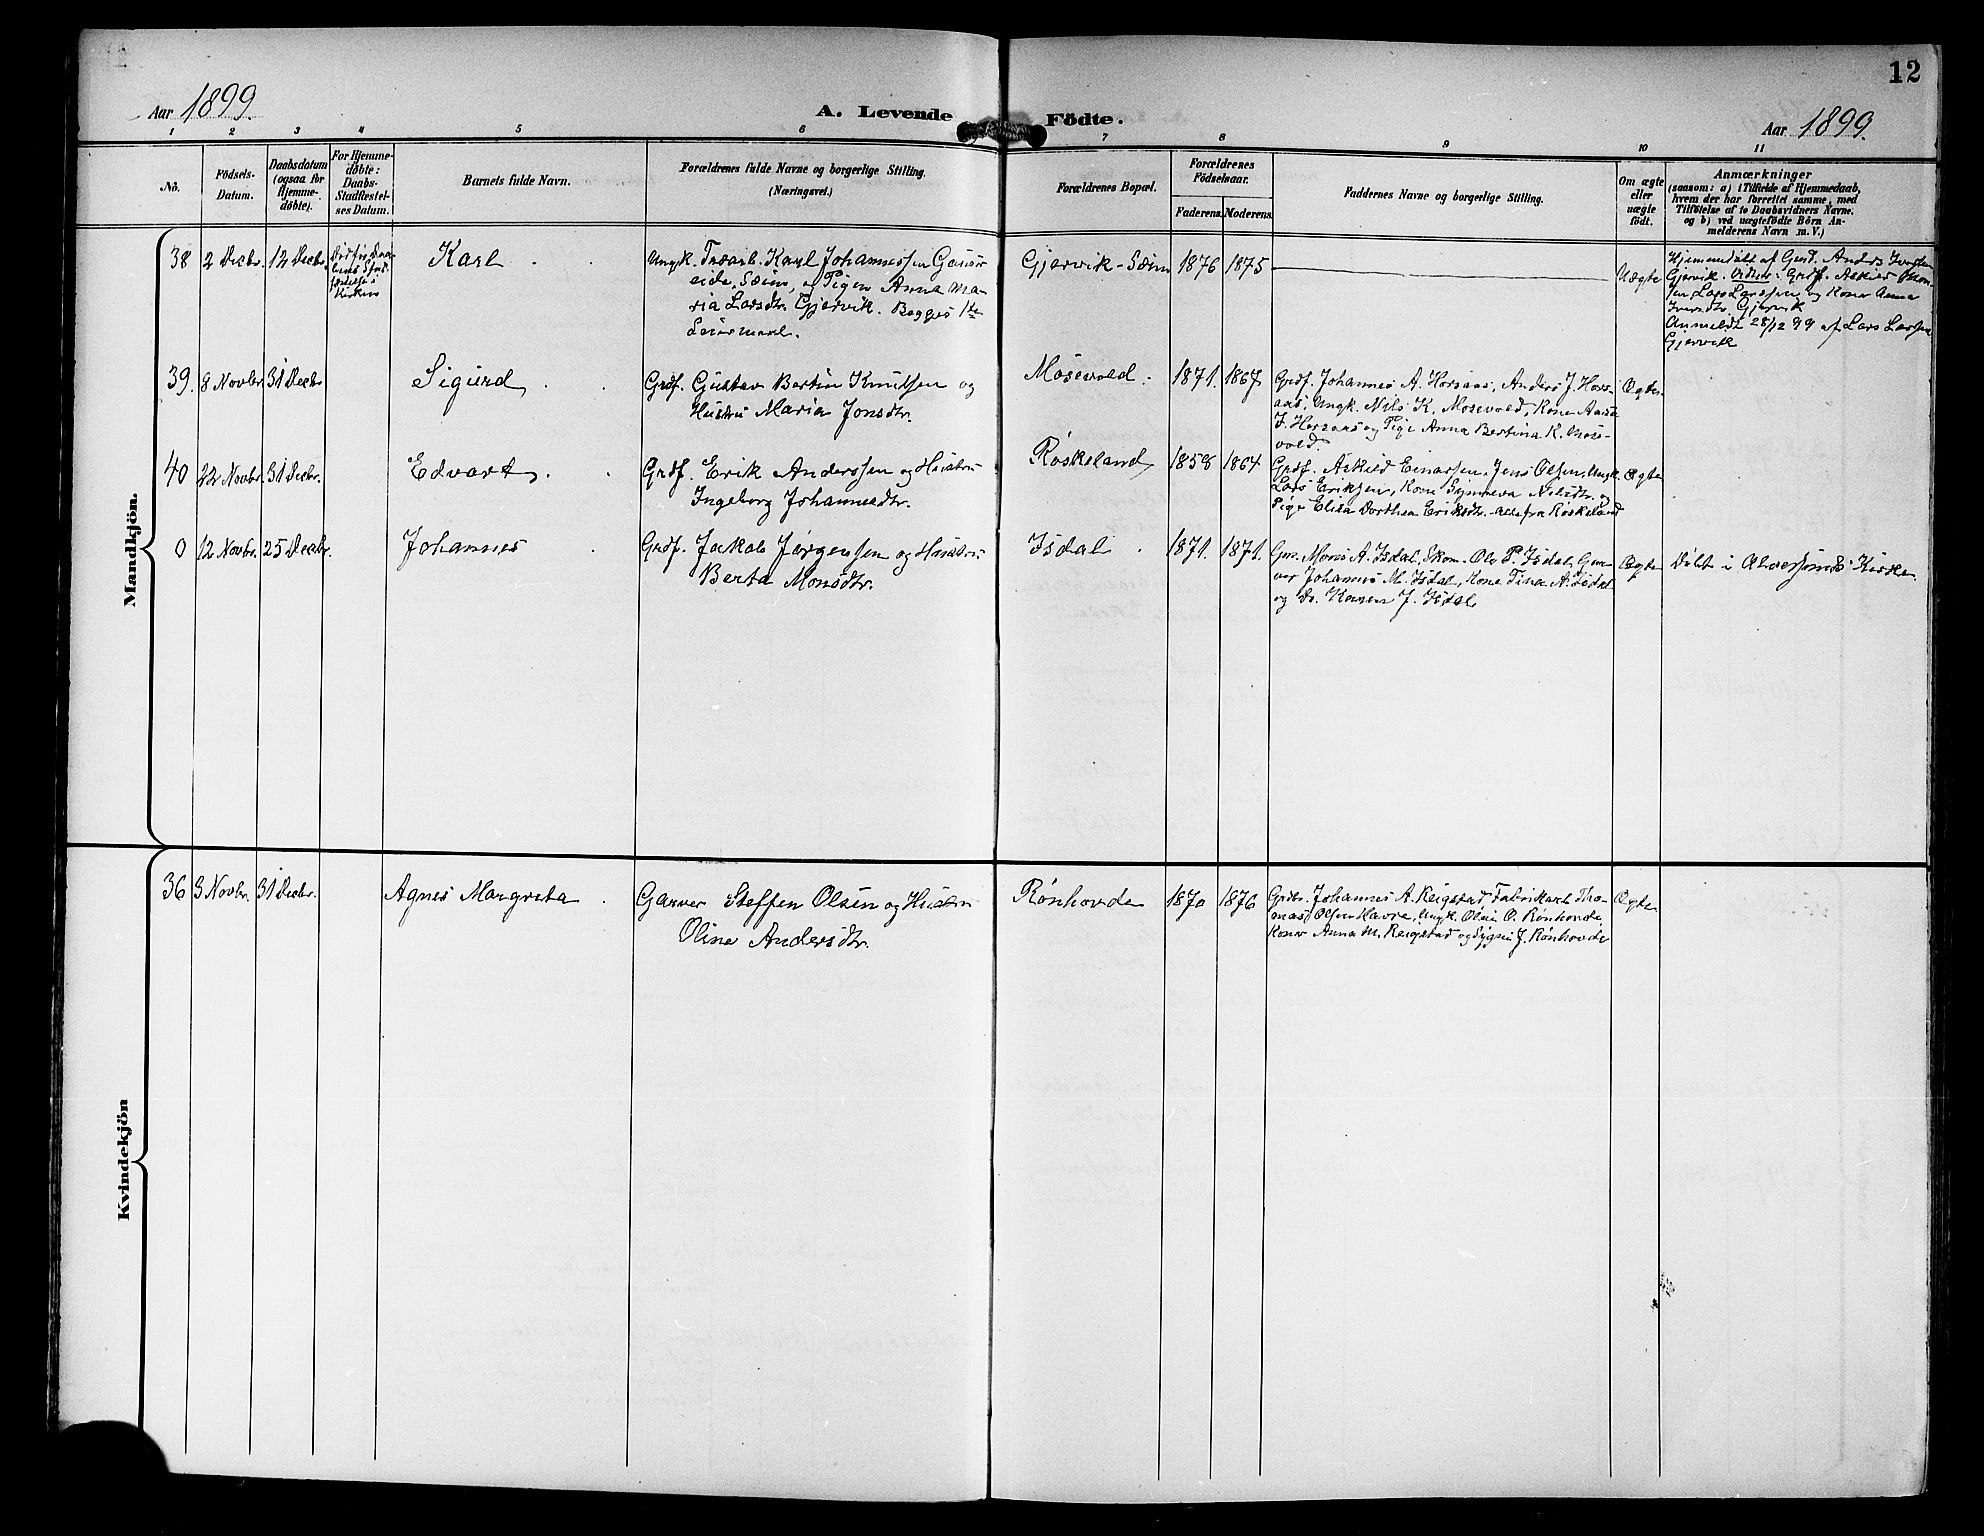 12
Aar 1899.
A. Levende Födte.
Aar 1899.
1 2 3 4 5 6 7 8 9 10 11
No.
Födsels-
Datum.
Daabsdatum
(ogsaa for
Hjemme-
döbte).
For Hjemme-
döbte:
Daabs-
Stadfæstel-
ses Datum.
Barnets fulde Navn.
Forældrenes fulde Navne og borgerlige Stilling.
(Næringsvei.)
Forældrenes Bopæl.
Forældrenes
Födselsaar.
Faderens. Moderens.
Faddernes Navne og borgerlige Stilling.
Om ægte
eller
uægte
födt.
Anmærkninger
(saasom: a) i Tilfælde af Hjemmedaab,
hvem der har forrettet samme, med
Tilföielse af to Daabsvidners Navne,
og b) ved uægtefödte Börn An-
melderens Navn m. V.)
Mandkjön.
38 2 Decbr. 12 Decbr.
Död før Daa-
bens Stad-
fæstelse i
Kirken
Karl
Ungk. Træarb. Karl Johannessen
eide, Sæim, og Pigen Anna Ma-
ria Larsdtr. Gjervik. Begges 1ste
Leiermaal.
Gjervik-Sæim 1876 1875
Uægte
Hjemmedöbt af Gård. Anders
Gjervik. Vidner: Grdf.
Lars Larssen og Kone Anna
Gjervik
Anmeldt 28/12 99 af Lars Larsen
Gjervik
39. 8 Novbr. 31 Decbr.
Sigurd
Grdf. Gustav Bertin Knudsen og
Hustru Maria Jonsdtr.
Mosevold. 1871. 1867
Grdf. Johannes A. Horsaas, Anders J. Hors-
aas, Ungk. Nils K. Mosevold, Kone
J. Horsaas og Pige Anna Bertina K. Mose-
vold.
Ægte.
40 22 Novbr. 31 Decbr.
Edvart
Grdf. Erik Anderssen og Hustru
Ingeborg Johannesdtr.
Røskeland 1858 1864
Grdf. Askild Einarsen, Jens Olsen, Ungk.
Lars Eriksen, Kone Synneva Nilsdtr. og
Pige Elisa Dorthea Eriksdtr. alle fra Røskeland
Ægte
0 12 Novbr. 25 Decbr.
Johannes
Grdf. Jakob Jørgensen og Hustru
Berta Monsdtr.
Isdal. 1871. 1871.
Gar. Mons A. Isdal, Skom. Ole P. Isdal, Gar-
ver Johannes M. Isdal, Kone Tina A. Isdal
og Do. Karen J. Isdal
Ægte
Döbt i Alversunds Kirke.
Kvindekjön
36 3 Novbr. 31 Decbr.
Agnes Margreta
Garver Steffen Olsen og Hustru
Oline Andersdtr.
Rønhovde 1870 1876
Grdbr. Johannes A. Reigstad, Fabrikarb. Tho-
mas Olsen Havre, Ungk. Olai O. Rønhovde
Koner Anna M. Reigstad og Sygni J. Rønhovde
Ægte